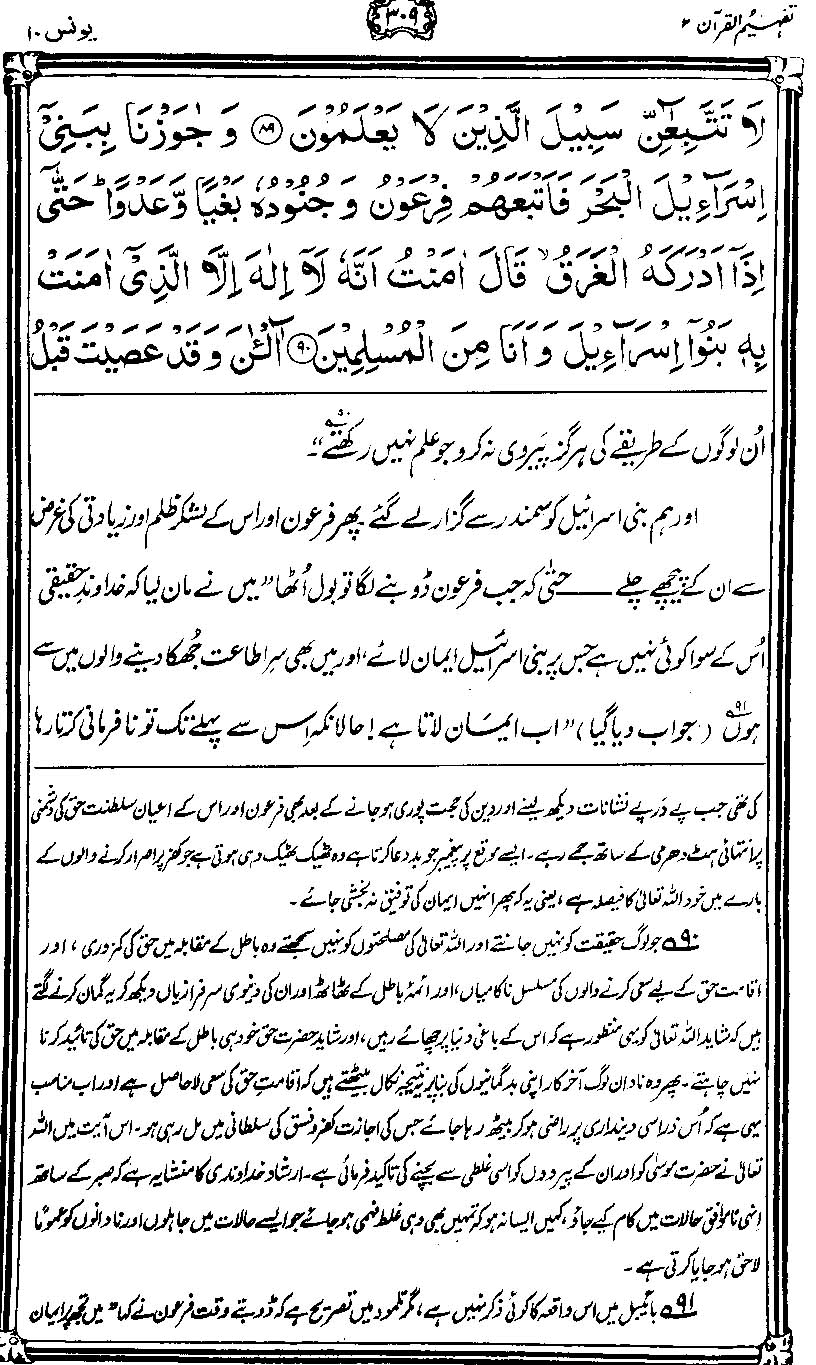 تفہیم القرآن ۲
۳۰۹
یونس ۱۰
لَا تَتَّبِعٰٓنِّ سَبِيْلَ الَّذِيْنَ لَا يَعْلَمُوْنَ ﴿۸۹﴾ وَ جٰوَزْنَا بِبَنِيْٓ
اِسْرَآءِيْلَ الْبَحْرَ فَاَتْبَعَهُمْ فِرْعَوْنُ وَ جُنُوْدُهٗ بَغْيًا وَّعَدْوًا ؕ حَتّٰٓى
اِذَآ اَدْرَكَهُ الْغَرَقُ ۙ قَالَ اٰمَنْتُ اَنَّهٗ لَآ اِلٰهَ اِلَّا الَّذِيْٓ اٰمَنَتْ
بِهٖ بَنُوْٓا اِسْرَآءِيْلَ وَ اَنَا مِنَ الْمُسْلِمِيْنَ ﴿۹۰﴾ آٰلْـٰٔنَ وَ قَدْ عَصَيْتَ قَبْلُ
اُن لوگوں کے طریقے کی ہرگز پیروی نہ کرو جو علم نہیں رکھتے۹۰"۔
اور ہم بنی اسرائیل کو سمندر سے گزار لے گئے۔ پھر فرعون اور اس کے لشکر ظلم اور زیادتی کی غرض
سے ان کے پیچھے چلے ــــــ حتیٰ کہ جب فرعون ڈوبنے لگا تو بول اُٹھا "میں نے مان لیا کہ خداوندِ حقیقی
اُس کے سوا کوئی نہیں ہے جس پر بنی اسرائیل ایمان لائے، اور میں بھی سرِ اطاعت جُھکا دینے والوں میں سے
ہوں۹۱" (جواب دیا گیا) "اب ایمان لاتا ہے! حالانکہ اِس سے پہلے تک تو نافرمانی کرتا رہا
کی تھی جب پے در پے نشانات دیکھ لینے اور دین کی حجت پوری ہو جانے کے بعد بھی فرعون اور اس کے اعیانِ سلطنت حق کی دشمنی
پر انتہائی ہٹ دھرمی کے ساتھ جمے رہے۔ ایسے موقع پر پیغمبر جو بددعا کرتا ہے وہ ٹھیک ٹھیک وہی ہوتی ہے جو کفر پر اصرار کرنے والوں کے
بارے میں خود اللہ تعالیٰ کا فیصلہ ہے، یعنی یہ کہ پھر انہیں ایمان کی توفیق نہ بخشی جائے۔
۹۰ جو لوگ حقیقت کو نہیں جانتے اور اللہ تعالیٰ کی مصلحتوں کو نہیں سمجھتے وہ باطل کے مقابلہ میں حق کی کمزوری، اور
اقامتِ حق کے لیے سعی کرنے والوں کی مسلسل ناکامیاں، اور ائمۂ باطل کے ٹھاٹھ اور ان کی دنیوی سرفرازیاں دیکھ کر یہ گمان کرنے لگتے
ہیں کہ شاید اللہ تعالیٰ کو یہی منظور ہے کہ اس کے باغی دنیا پر چھائے رہیں، اور شاید حضرتِ حق خود ہی باطل کے مقابلہ میں حق کی تائید کرنا
نہیں چاہتے۔ پھر وہ نادان لوگ آخر کار اپنی بدگمانیوں کی بنا پر یہ نتیجہ نکال بیٹھتے ہیں کہ اقامتِ حق کی سعی لاحاصل ہے اور اب مناسب
یہی ہے کہ اُس ذرا سی دینداری پر راضی ہو کر بیٹھ رہا جائے جس کی اجازت کفر و فسق کی سلطانی میں مل رہی ہو۔ اس آیت میں اللہ
تعالیٰ نے حضرت موسیٰؑ کو اور ان کے پیرووں کو اسی غلطی سے بچنے کی تاکید فرمائی ہے۔ ارشادِ خداوندی کا منشا یہ ہے کہ صبر کے ساتھ
انہی ناموافق حالات میں کام کیے جاؤ، کہیں ایسا نہ ہو کہ تمہیں بھی وہی غلط فہمی ہو جائے جو ایسے حالات میں جاہلوں اور نادانوں کو عموماً
لاحق ہو جایا کرتی ہے۔
۹۱ بائیبل میں اس واقعہ کا کوئی ذکر نہیں ہے، مگر تلمود میں تصریح ہے کہ ڈوبتے وقت فرعون نے کہا "میں تجھ پر ایمان